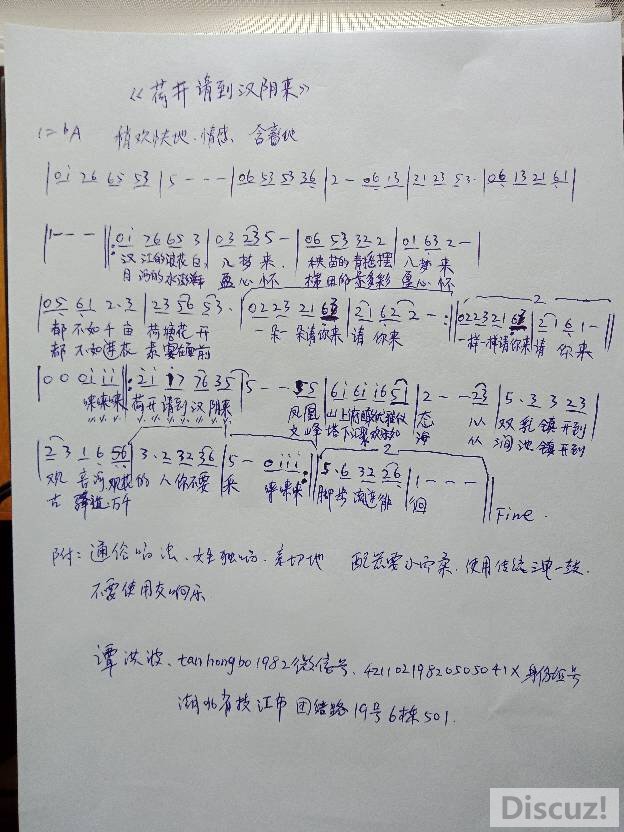 《荷开请到汉阴来》
1=bA 稍欢快地、情感、含蓄地
|0i 76 65 53 |5 - - -|06 53 53 36 |2 - 06 13 |21 23 53· |06 13 21 61|
|1 - - - ||:0i 76 65 3 |03 235 - |06 53 32 2 |01 63 2 - |
汉江的浪花白 入梦来 秧苗的青 摆 入梦来
月河的水 盈心怀 横田的 多彩 盈心怀
|05 61 2·3 |23 56 53· |0223 21 6 |2162 2 - :||0223 21 6 |21 6 1 - ||
都不如千亩 荷塘花开 一朵一朵请你来 请你来 一样一样请你来请 你来
都不如进花 在面前
|0 0 0 iii ||:2i i7 76 35 |5 - - 55 |6i 6i i6 5i |2 - - 23 |5·3 3 23 |
咪咪咪 荷开请到汉阴来 凤凰 山上 态 从 双乳镇开到
文峰 塔下汇 海 从 涧池镇开到
|2 3 1 6 56 |3·2 32 36 |5 - 0iii :||5·6 32 26 |1 - - - ||
观音河 观花 的人你不要 来 咪咪咪 脚步流连能 徊
古 道 万千
Fine.
附：通俗唱法、女生独唱、亲切地 配器要小而柔、使用传统三 一鼓、
不要使用交响乐
谭洪波、tanhongbo1982微信号、42110219820505041X身份证号
湖北省枝江市团结路19号6栋501.
Discuz!